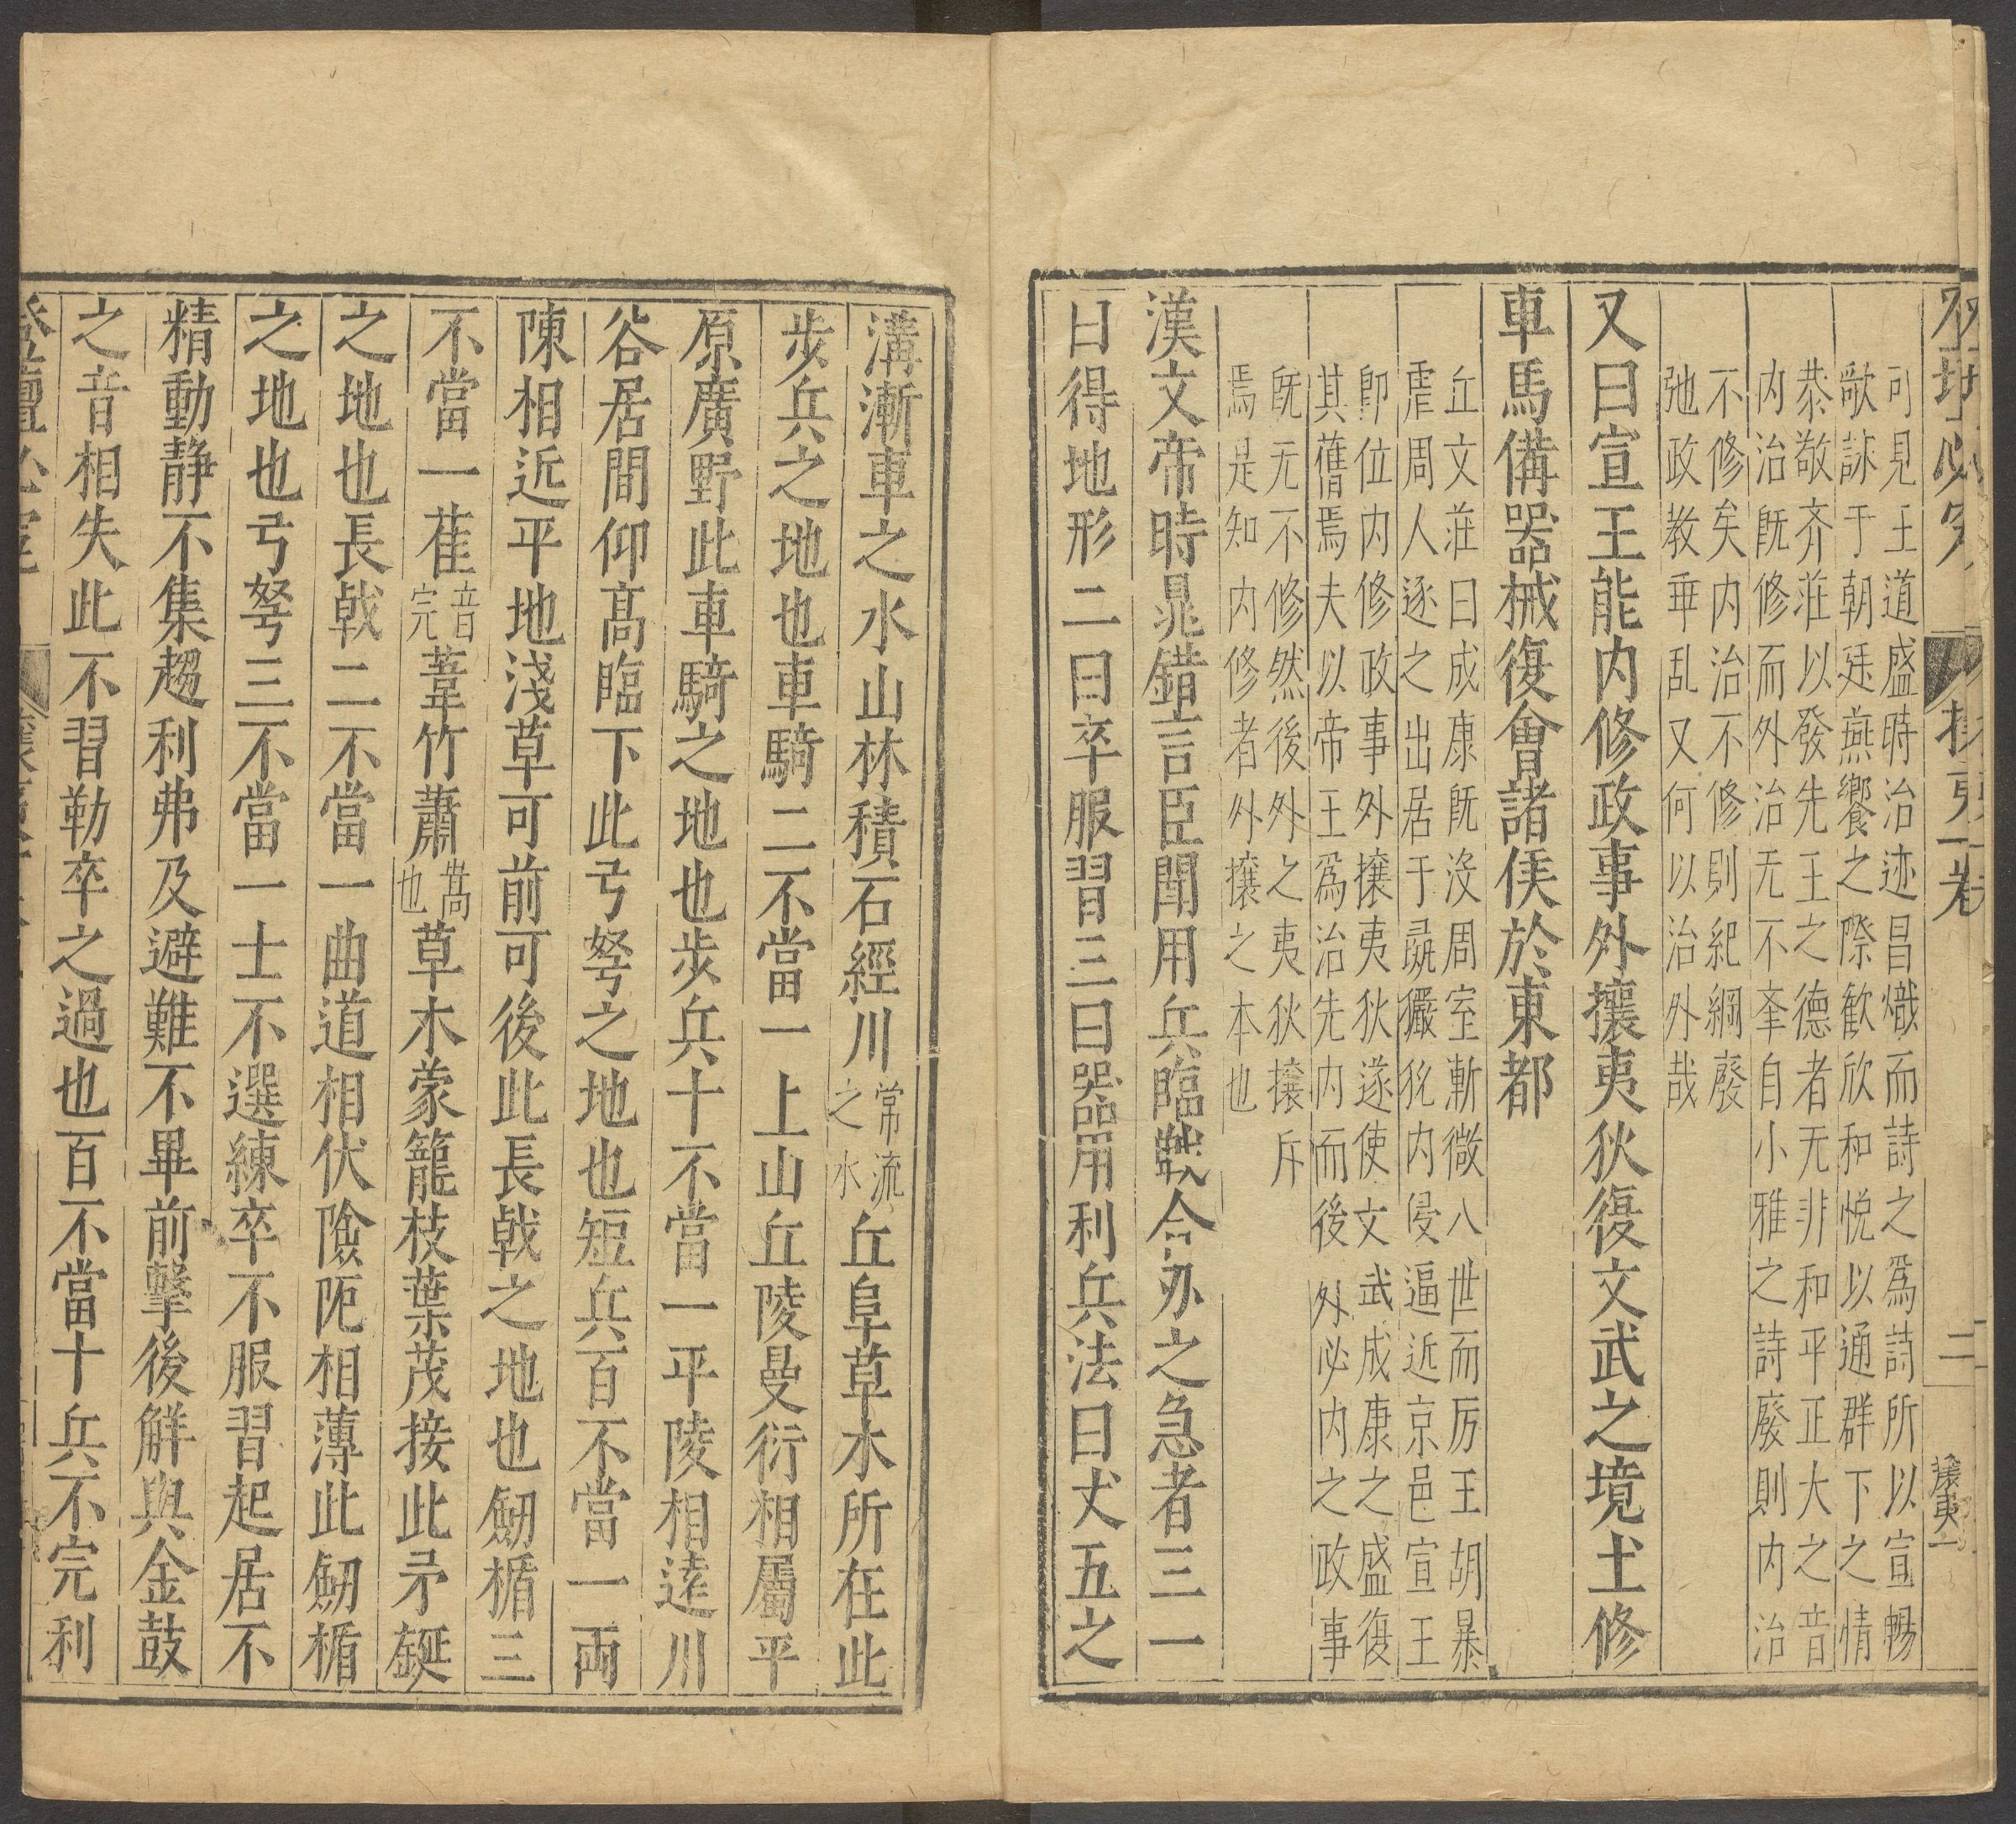 可見王道盛時治迹昌熾而詩之爲詩所以宣暢
歌詠于朝廷燕饗之際歡欣和悅以通群下之情
恭敬齐莊以發先王之德者无非和平正大之音
内治旣修而外治无不奎自小雅之詩廢則内治
不修矣内治不修則紀綱廢
弛政教乖乱又何以治外哉
又曰宣王能内修政事外攘夷狄復文武之境土修
車馬備器械復會諸侯於東都
丘文莊曰成康旣没周室漸微八世而厉王胡暴
虐周人逐之出居于彘玁狁内侵逼近京邑宣王
卽位内修政事外攘夷狄遂使文武成康之盛復
其舊焉夫以帝王爲治先内而後外必内之政事
旣无不修然後外之夷狄攘斥
焉是知内修者外攘之本也
漢文帝時晁錯言臣聞用兵臨戰合刃之急者三一
曰得地形二曰卒服習三曰器用利兵法曰丈五之
溝漸車之水山林積石經川常流
之水丘阜草木所在此
步兵之地也車騎二不當一上山丘陵曼衍相屬平
原廣野此車騎之地也步兵十不當一平陵相遠川
谷居間仰高臨下此弓弩之地也短兵百不當一両
陳相近平地淺草可前可後此長戟之地也劒楯三
不當一萑音
完葦竹蕭蒿
也草木蒙籠枝葉茂接此矛鋋
之地也長戟二不當一曲道相伏險阨相薄此劒楯
之地也弓弩三不當一士不選練卒不服習起居不
精動静不集趨利弗及避難不畢前擊後解與金鼓
之音相失此不習勒卒之過也百不當十兵不完利
二
攘夷一